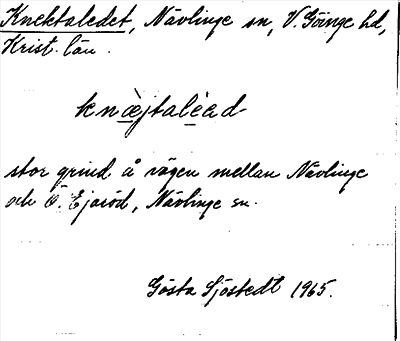 Knektaledet, Nävlinge sn, V. Göinge hd,
Krist. län.
knæjtalèad
stor grind å vägen mellan Nävlinge
och Ö. Ejaröd, Nävlinge sn.
Gösta Sjöstedt 1965.